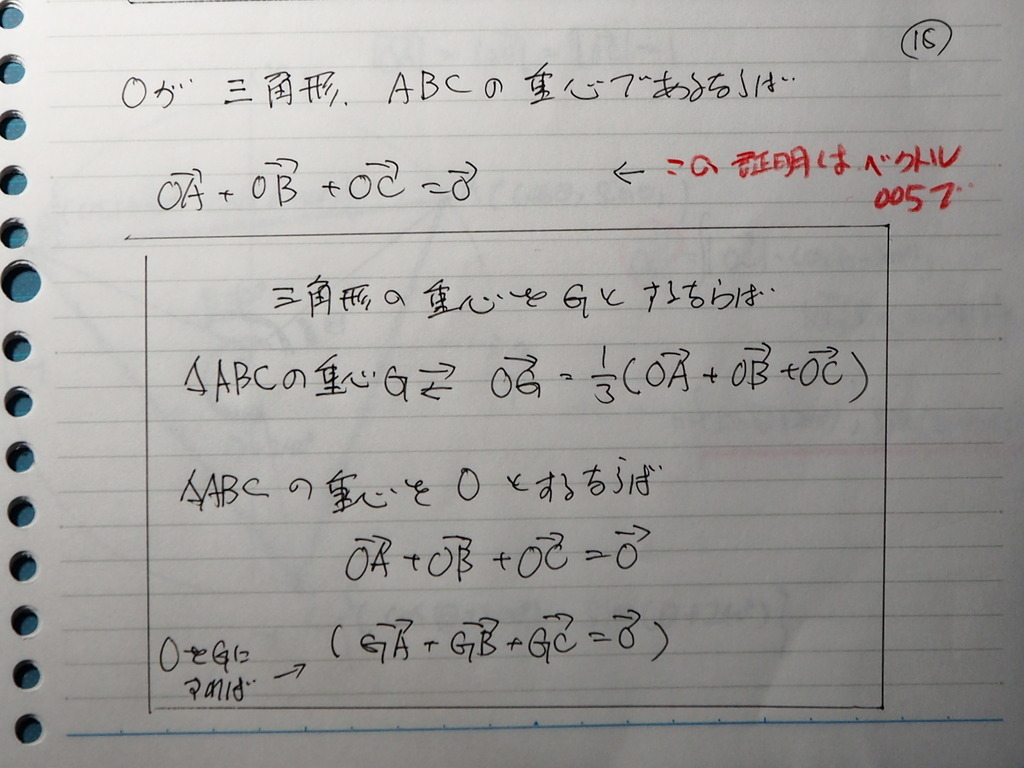 16
Oが 三角形. ABCの 重心であるならば
OA→ + OB→ + OC→ = 0→
← この 証明は ベクトル
005で
三角形の 重心を Gと するならば
△ABCの 重心G ⇄ OG→ = 1/3 (OA→ + OB→ + OC→)
△ABCの 重心を O とするならば
OA→ + OB→ + OC→ = 0→
(GA→ + GB→ + GC→ = 0→)
OをGに
すれば →